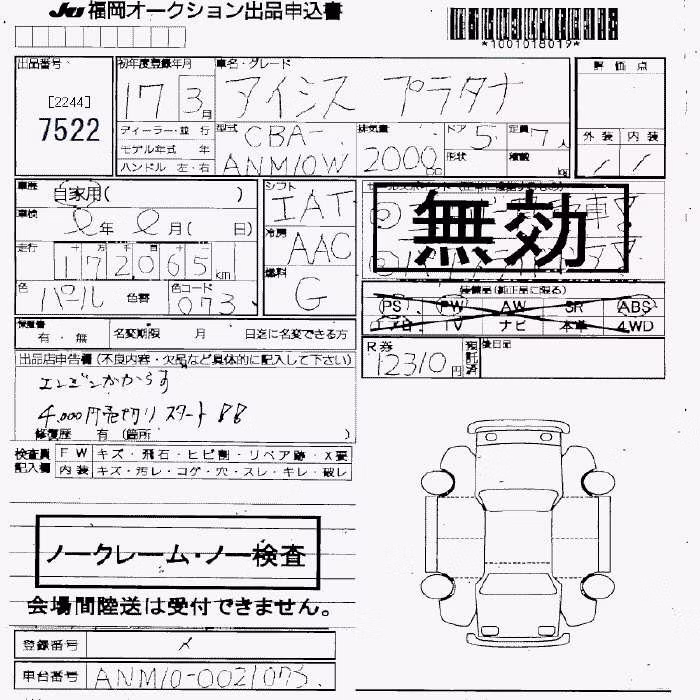 JU 福岡オークション出品申込書
*1001018019*
出品番号 [2244] 7522
初年度登録年月 17 3月
車名・グレード アイシス プラタナ
評価点
外装 内装
ディーラー・並行
モデル年式 年
ハンドル 左・右
型式 CBA- ANM10W
排気量 2000cc
ドア 5
形状
定員 7人
積載 kg
車歴 自家用( )
車検 年 月( 日)
走行 十 万 千 百 十 一
172065km
色 パール 色替 色コード 073
シフト IAT
冷房 AAC
燃料 G
無効
装備品(純正品に限る)
PS PW AW SR ABS
エアB TV ナビ 本革 4WD
保証書 有・無 名変期限 月 日迄に名変できる方
R券 12310円 預託済 後日品
出品店申告欄(不良内容・欠品など具体的に記入して下さい)
エンジンかからず
4,000円売切り スタート BB
修復歴 有 (箇所 )
検査員記入欄
FW キズ・飛石・ヒビ割・リペア跡・X要
内装 キズ・汚レ・コゲ・穴・スレ・キレ・破レ
ノークレーム・ノー検査
会場間陸送は受付できません。
登録番号
車台番号 ANM10-0021073